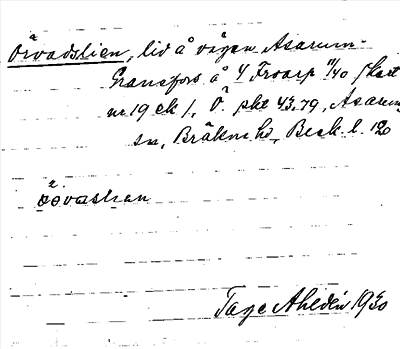 Örvadslien, lid å vägen Asarum-
Granefors å Y Froarp 11/40 (kart
nr 19 ek 1, Ö. pkt 43,79, Asarum
sn, Bräkne hd, Blek. l. 120
Tage Ahldén 1930